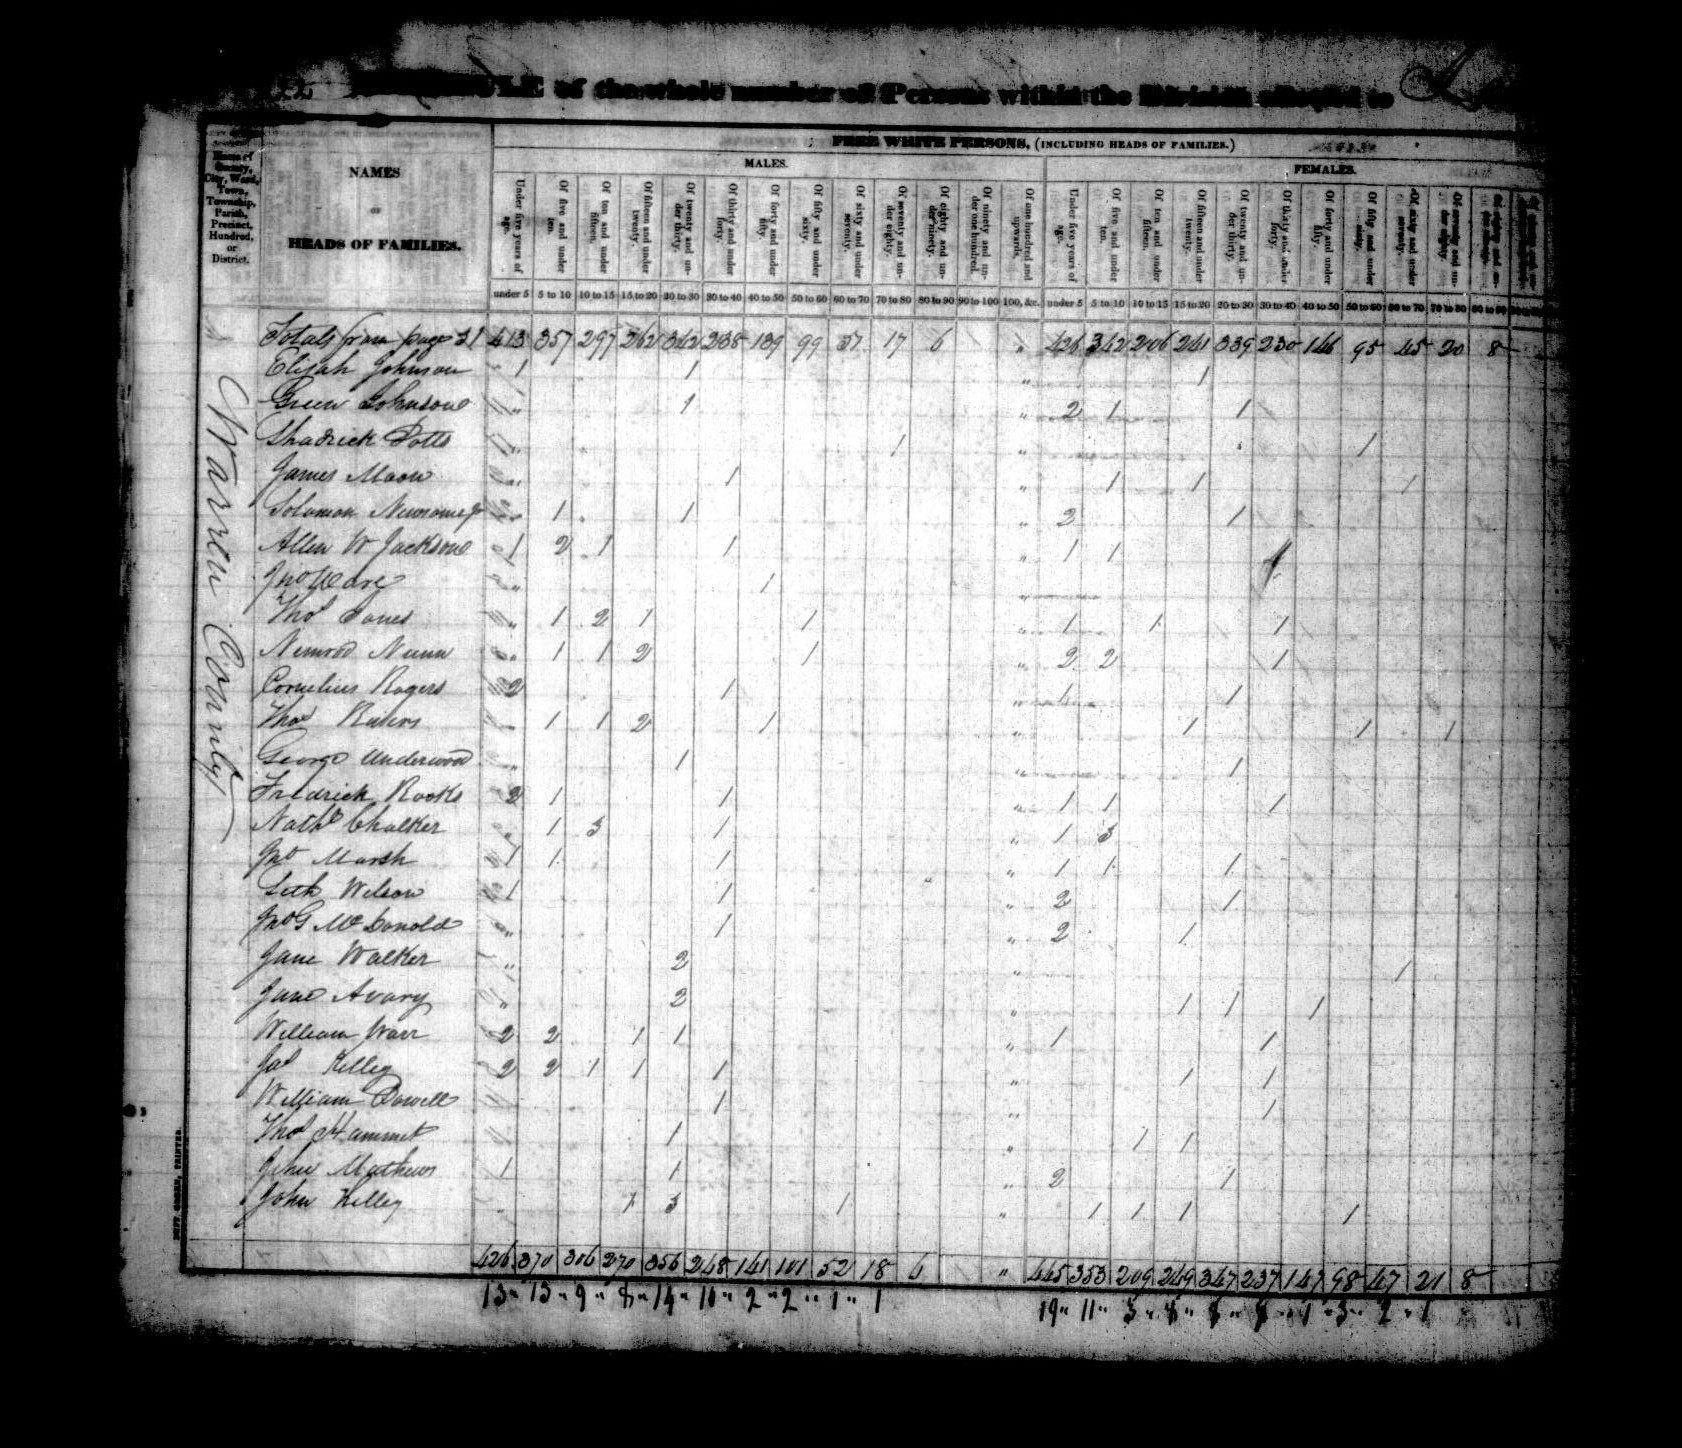 of the whole number of Persons within the Division allotted to
FREE WHITE PERSONS, (INCLUDING HEADS OF FAMILIES.)
MALES. FEMALES.
Name of County, City, Ward, Town, Township, Parish, Precinct, Hundred, or District.
NAMES
OF
HEADS OF FAMILIES.
Under five years of age. Of five and under ten. Of ten and under fifteen. Of fifteen and under twenty. Of twenty and under thirty. Of thirty and under forty. Of forty and under fifty. Of fifty and under sixty. Of sixty and under seventy. Of seventy and under eighty. Of eighty and under ninety. Of ninety and under one hundred. Of one hundred and upwards. Under five years of age. Of five and under ten. Of ten and under fifteen. Of fifteen and under twenty. Of twenty and under thirty. Of thirty and under forty. Of forty and under fifty. Of fifty and under sixty. Of sixty and under seventy. Of seventy and under eighty.
under 5 5 to 10 10 to 15 15 to 20 20 to 30 30 to 40 40 to 50 50 to 60 60 to 70 70 to 80 80 to 90 90 to 100 100, &c. under 5 5 to 10 10 to 15 15 to 20 20 to 30 30 to 40 40 to 50 50 to 60 60 to 70 70 to 80 80 to 90
Warren County
Totals from page 21 413 357 297 262 342 238 139 99 17 6 " 426 342 206 241 339 230 146 95 45 20 8
Elijah Johnson 1 1 " 1
Green Johnson " 1 " 2 1 1
Shadrick Potts " 1 " 1
James Moon " 1 " 1 1 1
Solomon Newsome jr 1 1 " 2 1
Allen W Jackson 1 2 1 1 " 1 1 1
Jno Ware " 1 "
Thos Jones " 1 2 1 1 " 1 1 1
Nimrod Nunn " 1 1 2 1 " 2 2 1
Cornelius Rogers 2 1 " 1 1
Thos Rivers 1 1 2 1 " 1 1 1
George Underwood " 1 " 1
Fredrick Rooks 2 1 1 " 1 1 1
Nathl Chalker " 1 3 1 " 1 3
Jno Marsh 1 1 1 " 1 1 1
Seth Wilson 1 1 " 2 1
Jno G McDonold " 1 " 2 1
Jane Walker " 2 " 1
Jane Avary " 2 " 1 1 1
William Warr 2 2 1 1 " 1 1
Jas Kelley 2 2 1 1 1 " 1 1
William Dowell 1 " 1
Thos Hammet 1 " 1 1
John Mathews 1 1 " 2 1
John Kelley 1 3 1 " 1 1 1 1
426 370 306 270 356 248 141 101 52 18 6 " 445 353 209 249 347 237 147 98 47 21 8
13 " 13 " 9 " 8 " 14 " 10 " 2 " 2 " 1 " 1 19 " 11 " 3 " 8 " 8 " 1 " 3 " 2 " 1
DUFF GREEN, PRINTER.